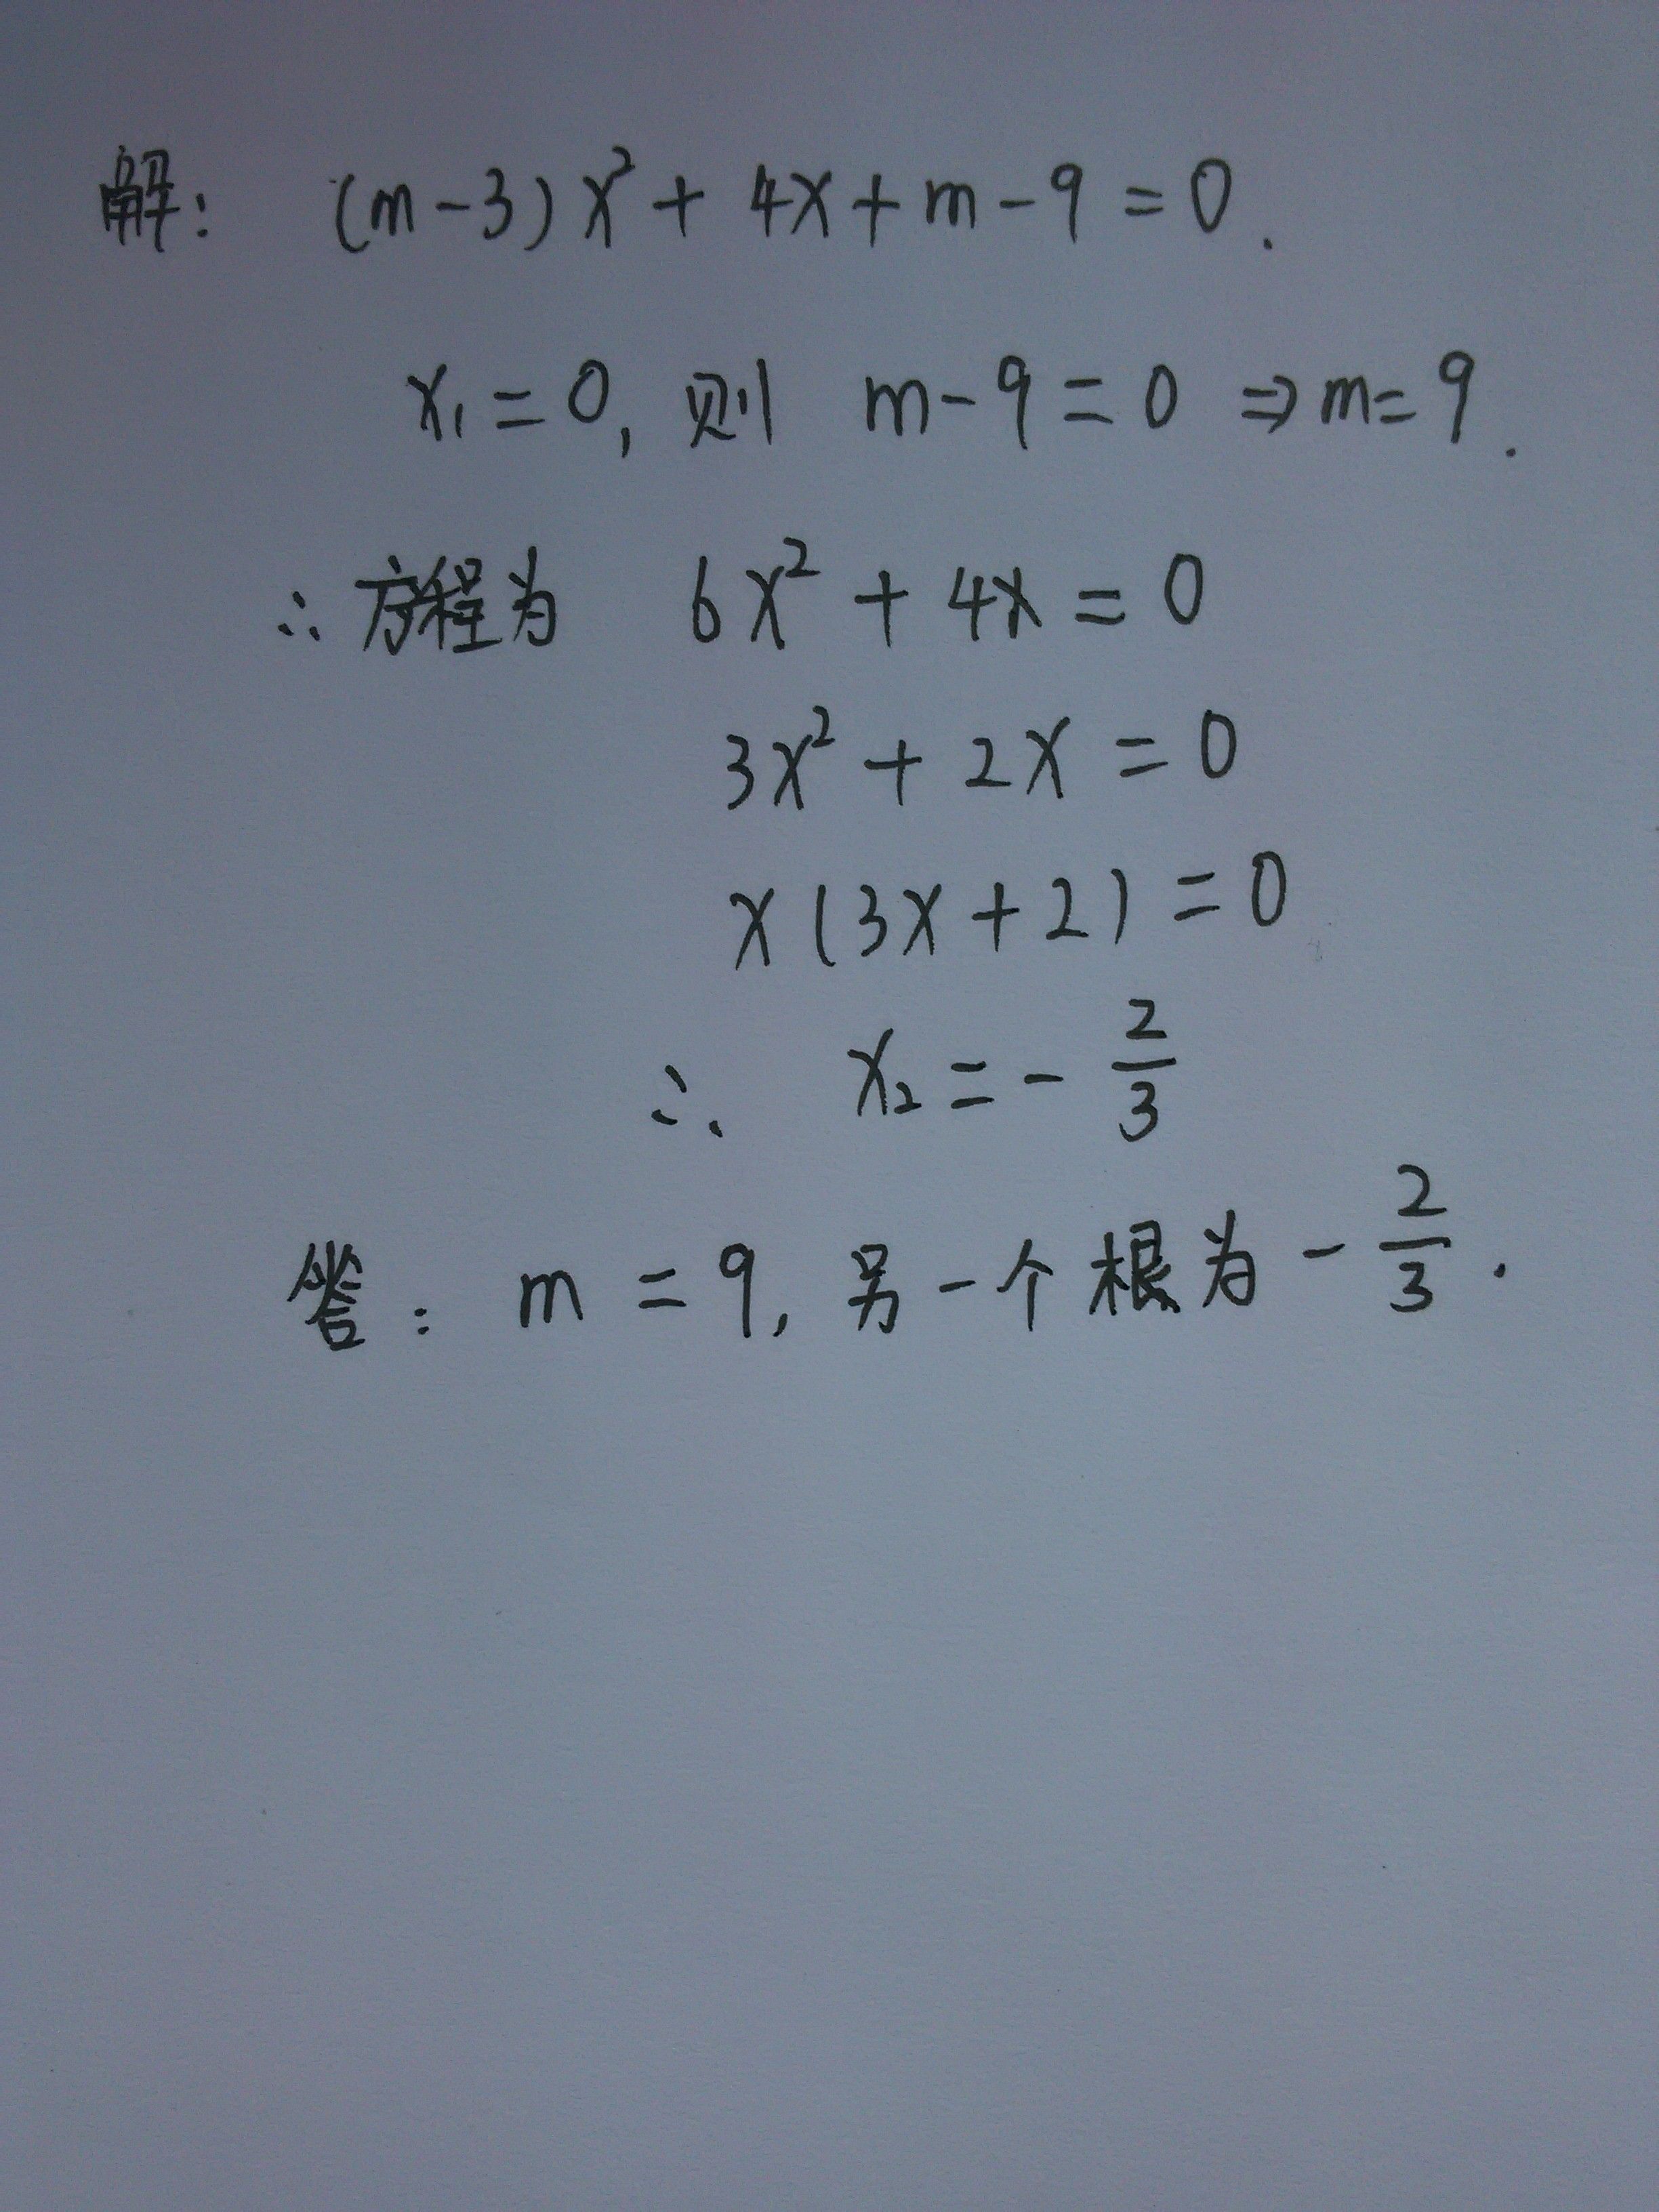 解: (m-3)x²+4x+m-9=0.
x₁=0, 则 m-9=0 ⇒ m=9.
∴方程为 6x²+4x=0
3x²+2x=0
x(3x+2)=0
∴ x₂=-2/3
答: m=9, 另一个根为-2/3.